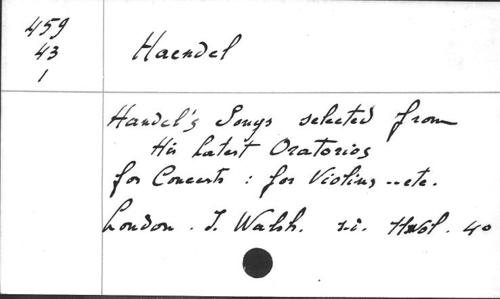 459
43
1
Haendel
Handel's Songs selected from
His Latest Oratorios
for Concerts : for Violins .. etc.
London . J. Walsh. 4°